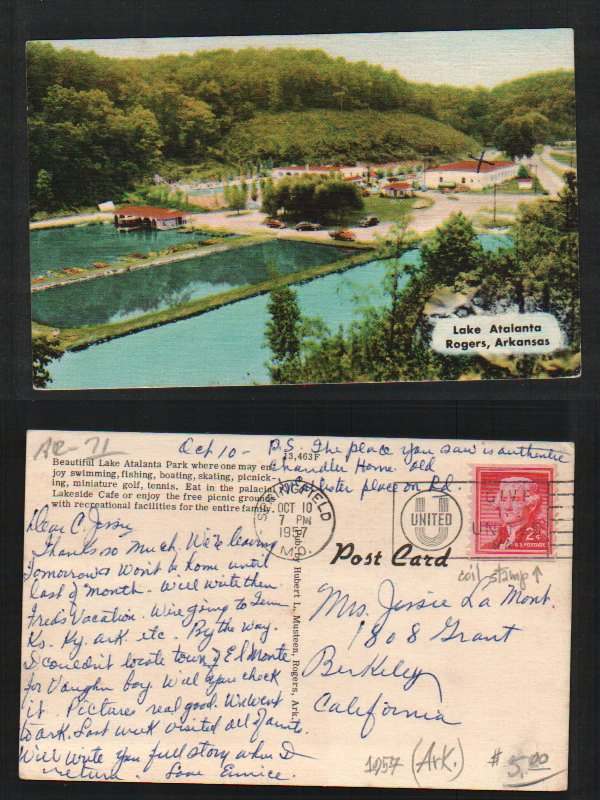 Lake Atalanta
Rogers, Arkansas
AR-71
Oct 10 - P.S. The place you saw is authentic
Chandler Home old
McAlister place on Rd.
13,463F
Beautiful Lake Atalanta Park where one may en-
joy swimming, fishing, boating, skating, picnick-
ing, miniature golf, tennis. Eat in the palacial
Lakeside Cafe or enjoy the free picnic grounds
with recreational facilities for the entire family.
SPRINGFIELD
OCT 10
7 PM
1957
MO.
GIVE
UNITED
U.S. POSTAGE
2¢
Post Card
coil stamp ↑
Pub. by Hubert L. Musteen, Rogers, Ark.
Dear C. Jessie
Thanks so much. We're leaving
Tomorrow Won't be home until
last of month. Will write then
Fred's Vacation. We're going to Tenn
Ks. Ky. ark. etc. By the way.
I couldn't locate town of El Monte
for Vaughn boy. Will you check
it. Pictures real good. We went
to ark. Last week visited all of aunts.
Will write you full story when I
return. Love Eunice.
Mrs. Jessie La Mont.
1808 Grant
Berkeley
California
1957 (Ark.) $5.00